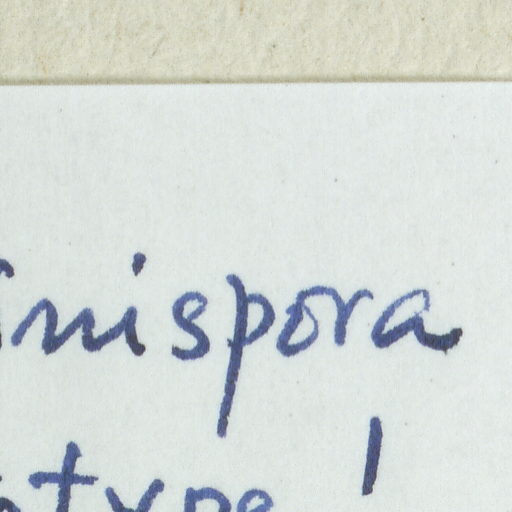 inispora
otype !